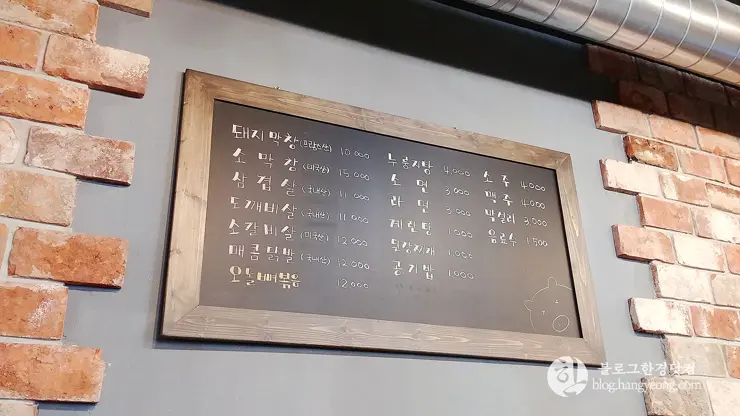 돼지막창(프랑스산) 10,000
소막창(미국산) 15,000
삼겹살(국내산) 11,000
도깨비살(국내산) 11,000
소갈비살(미국산) 12,000
매콤닭발(국내산) 12,000
오돌뼈볶음 12,000
누룽지탕 4,000
소면 3,000
라면 3,000
계란탕 1,000
된장찌개 1,000
공기밥 1,000
소주 4,000
맥주 4,000
막걸리 3,000
음료수 1,500
블로그한경닷컴
blog.hangyeong.com